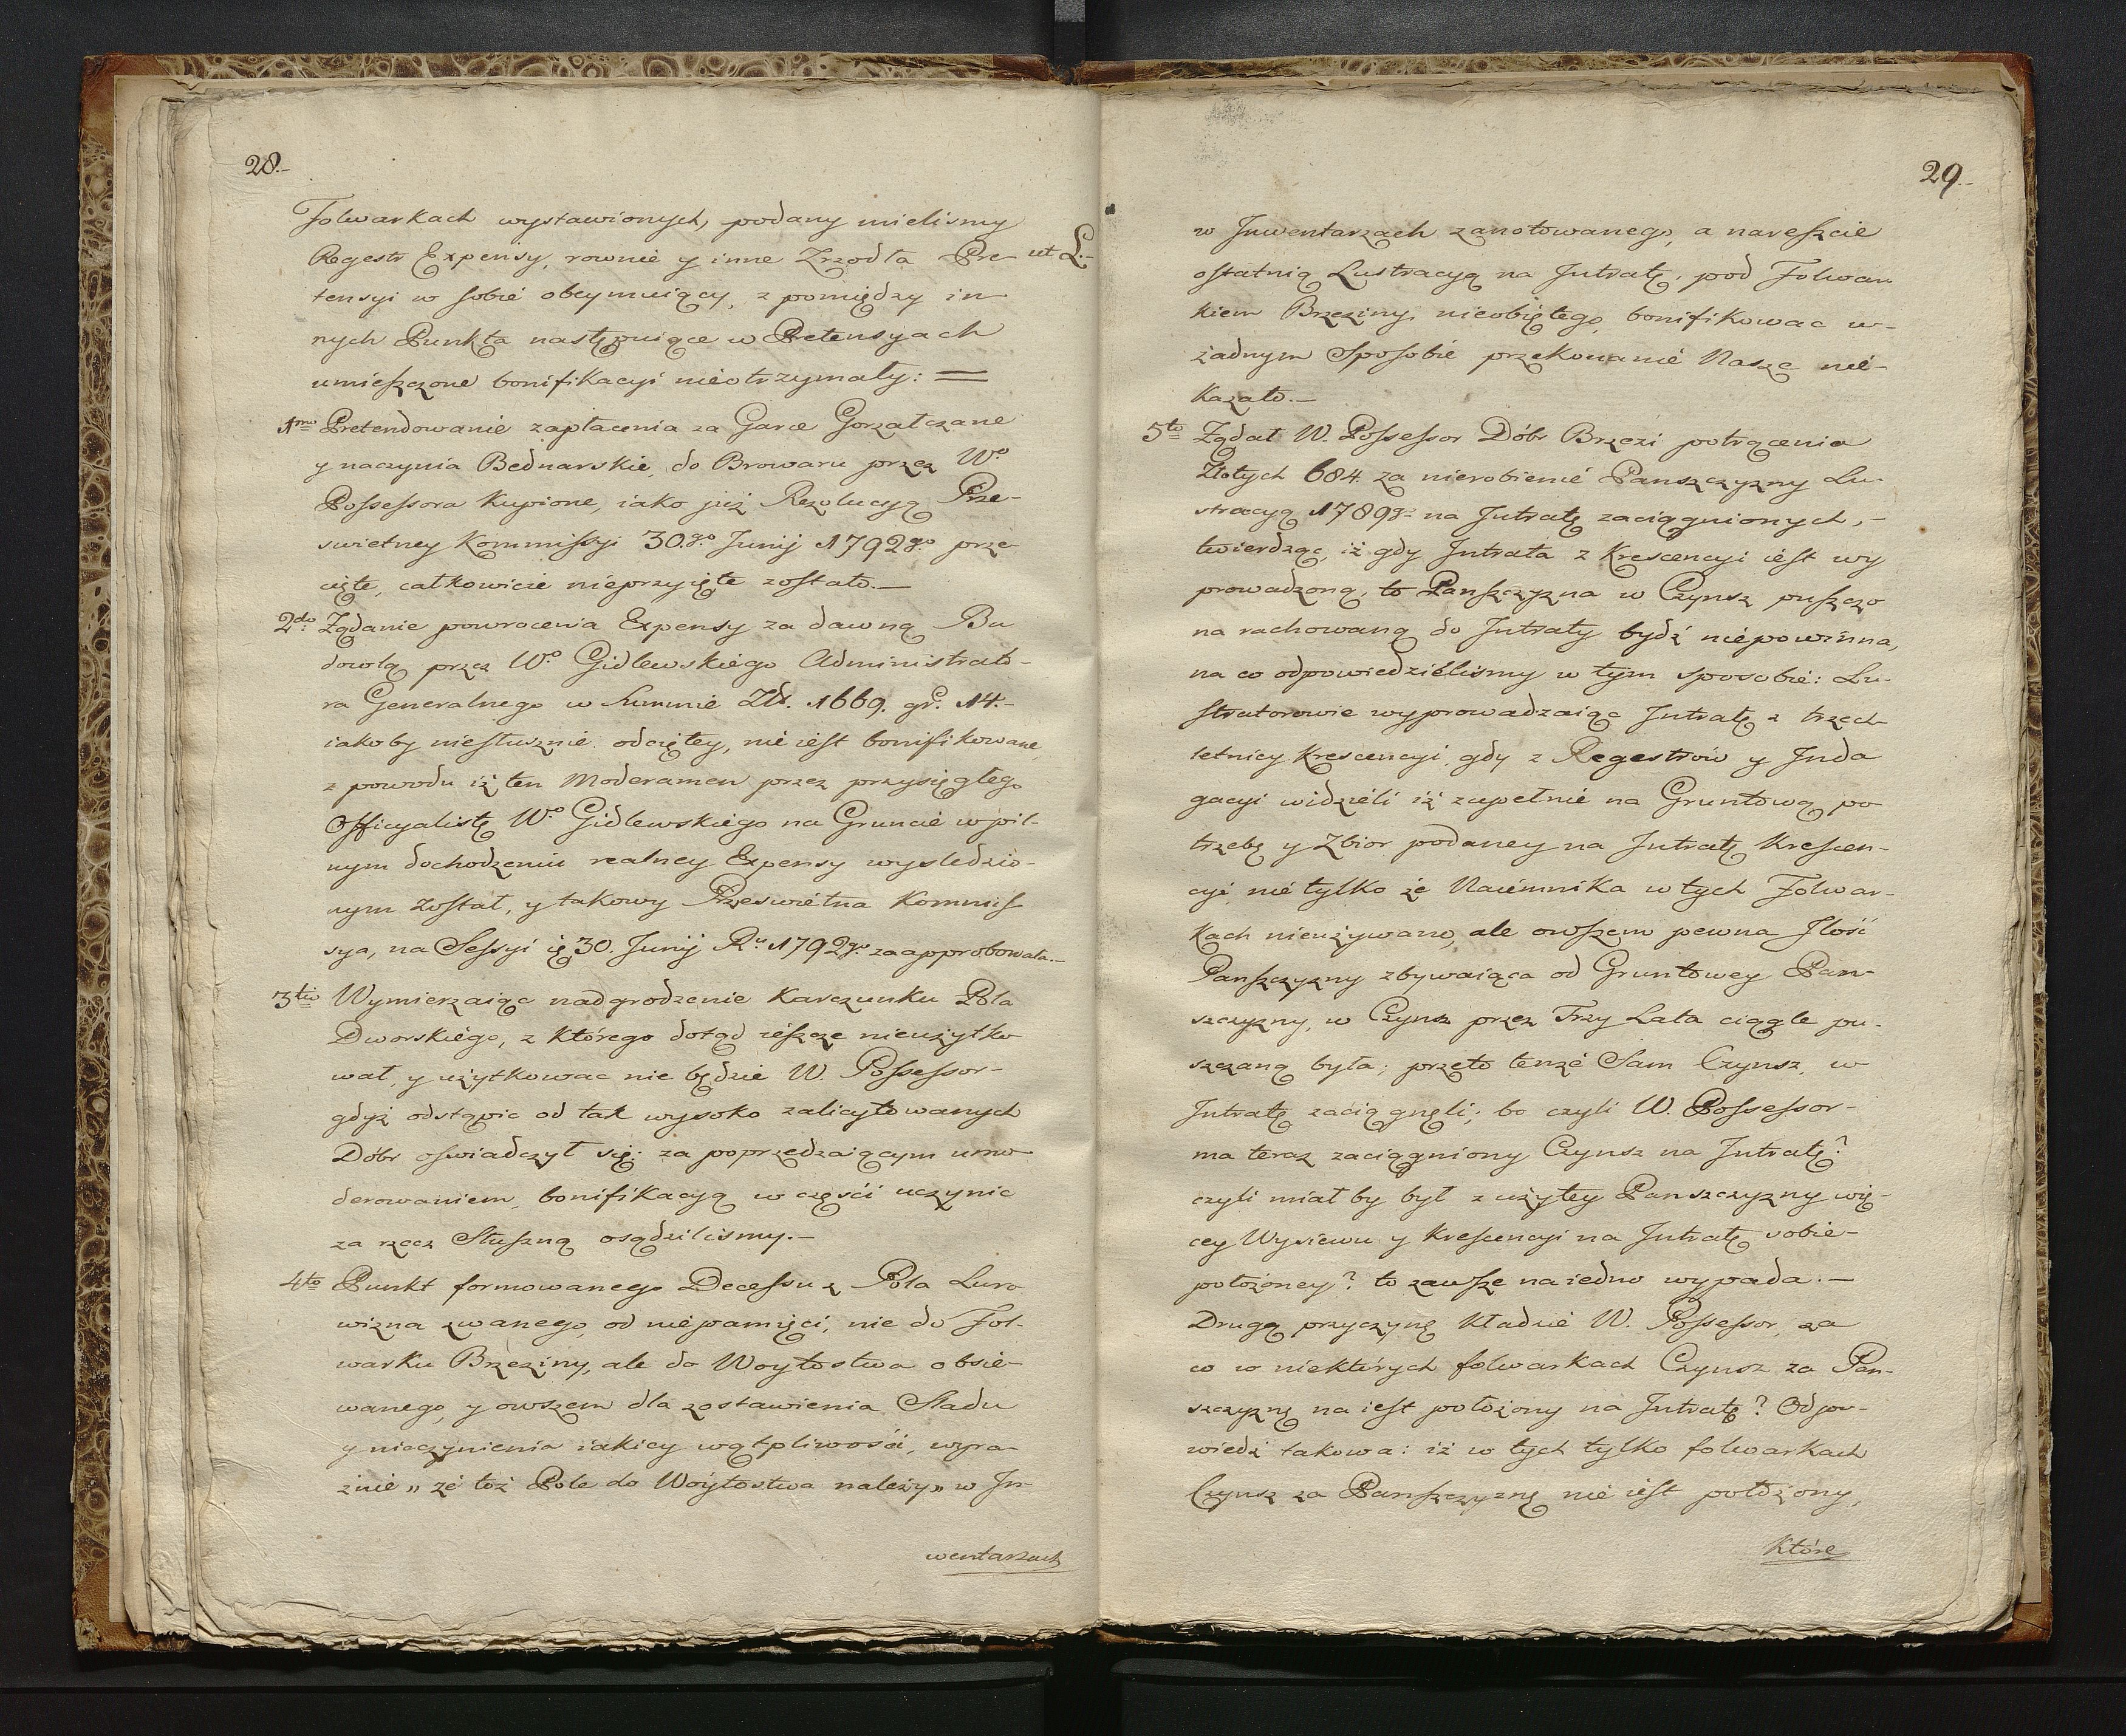 28.
Folwarkach wystawionych, podany mielismy
Regestr Expensy, rownie y inne Zrzodła Pre- ut L.
tensyi w sobie obeymuiący, z pomiędzy in
nych Punkta następuiące w Pretensyach
umieszczone bonifikacyi nieotrzymały: =
1mo Pretendowanie zapłacenia za Garce Gorzałczane
y naczynia Bednarskie, do Browaru przez Wo
Possessora kupione, iako już Rezolucyą Prze-
swietney Kommissyi 30.go Junij 1792go prze
cięte, całkowicie nieprzyięte zostało.—
2do Żądanie powrocenia Expensy za dawną Bu
dowlą przez Wo Gidlewskiego Administrato-
ra Generalnego w Summie Złł. 1669. gr. 14.-
iakoby niesłusznie odciętey, nie iest bonifikowane,
z powodu iż ten Moderamen przez przysięgłego
Officyalistę Wo Gidlewskiego na Gruncie w pil-
nym dochodzeniu realney Expensy wysledzio-
nym został, y takowy Przeswietna Kommis
sya, na Sessyi 30. Junij Ru 1792go zaapprobowała.—
3tio Wymierzaiąc nadgrodzenie Karczunku Pola
Dworskiego, z którego dotąd ieszcze nieużytko
wał, y użytkowac nie będzie W. Possessor-
gdyż odstąpic od tak wysoko zalicytowanych
Dóbr oswiadczył się: za poprzedzaiącym umo
derowaniem, bonifikacyą w części uczynic
za rzecz Słuszną osądzilismy.—
4to Punkt formowanego Decessu z Pola Luro
wizna zwanego, od niepamięci, nie do Fol-
warku Brzeziny, ale do Woytostwa obsie-
wanego, y owszem dla zostawienia Sladu
y nieczynienia iakiey wątpliwości, wyra-
znie „ że toż Pole do Woytostwa należy „ w In-
wentarzach
29.
w Inwentarzach zanotowanego, a nareszcie
ostatnią Lustracyą na Intratę, pod Folwar
kiem Brzeziny nieobiętego, bonifikowac w-
żadnym Sposobie przekonanie Nasze nie-
kazało.—
5to Żądał W. Possessor Dóbr Brzezi potrącenia
Złotych 684 za nierobienie Panszczyzny Lu-
stracyą 1789go na Intratę zaciągnionych, -
twierdząc, iż gdy Intrata z Krescencyi iest wy
prowadzoną, to Panszczyzna w Czynsz puszczo
na rachowaną do Intraty bydź niepowinna,
na co odpowiedzielismy w tym sposobie: Lu-
stratorowie wyprowadzaiąc Intratę z trzech
letniey Krescencyi, gdy z Regestrów y Inda
gacyi widzieli iż zupełnie na Gruntową po
trzebę y Zbior podaney na Intratę Krescen-
cyi nie tylko że Naiemnika w tych Folwar-
kach nieużywano, ale owszem pewna Ilość
Panszczyzny zbywaiąca od Gruntowey Pan-
szczyzny, w Czynsz przez Trzy Lata ciągle pu-
szczaną była; przeto tenże Sam Czynsz, w
Intratę zaciągnęli; bo czyli W. Possessor-
ma teraz zaciągniony Czynsz na Intratę?
czyli miał by był z użytey Panszczyzny wię-
cey Wysiewu y Krescencyi na Intratę sobie-
położoney? to zawsze na iedno wypada.—
Drugą przyczynę kładzie W. Possessor, za
co w niektórych folwarkach Czynsz za Pan-
szczyznę na iest położony na Intratę? Odpo-
wiedź takowa: iż w tych tylko folwarkach
Czynsz za Panszczyznę nie iest położony,
które